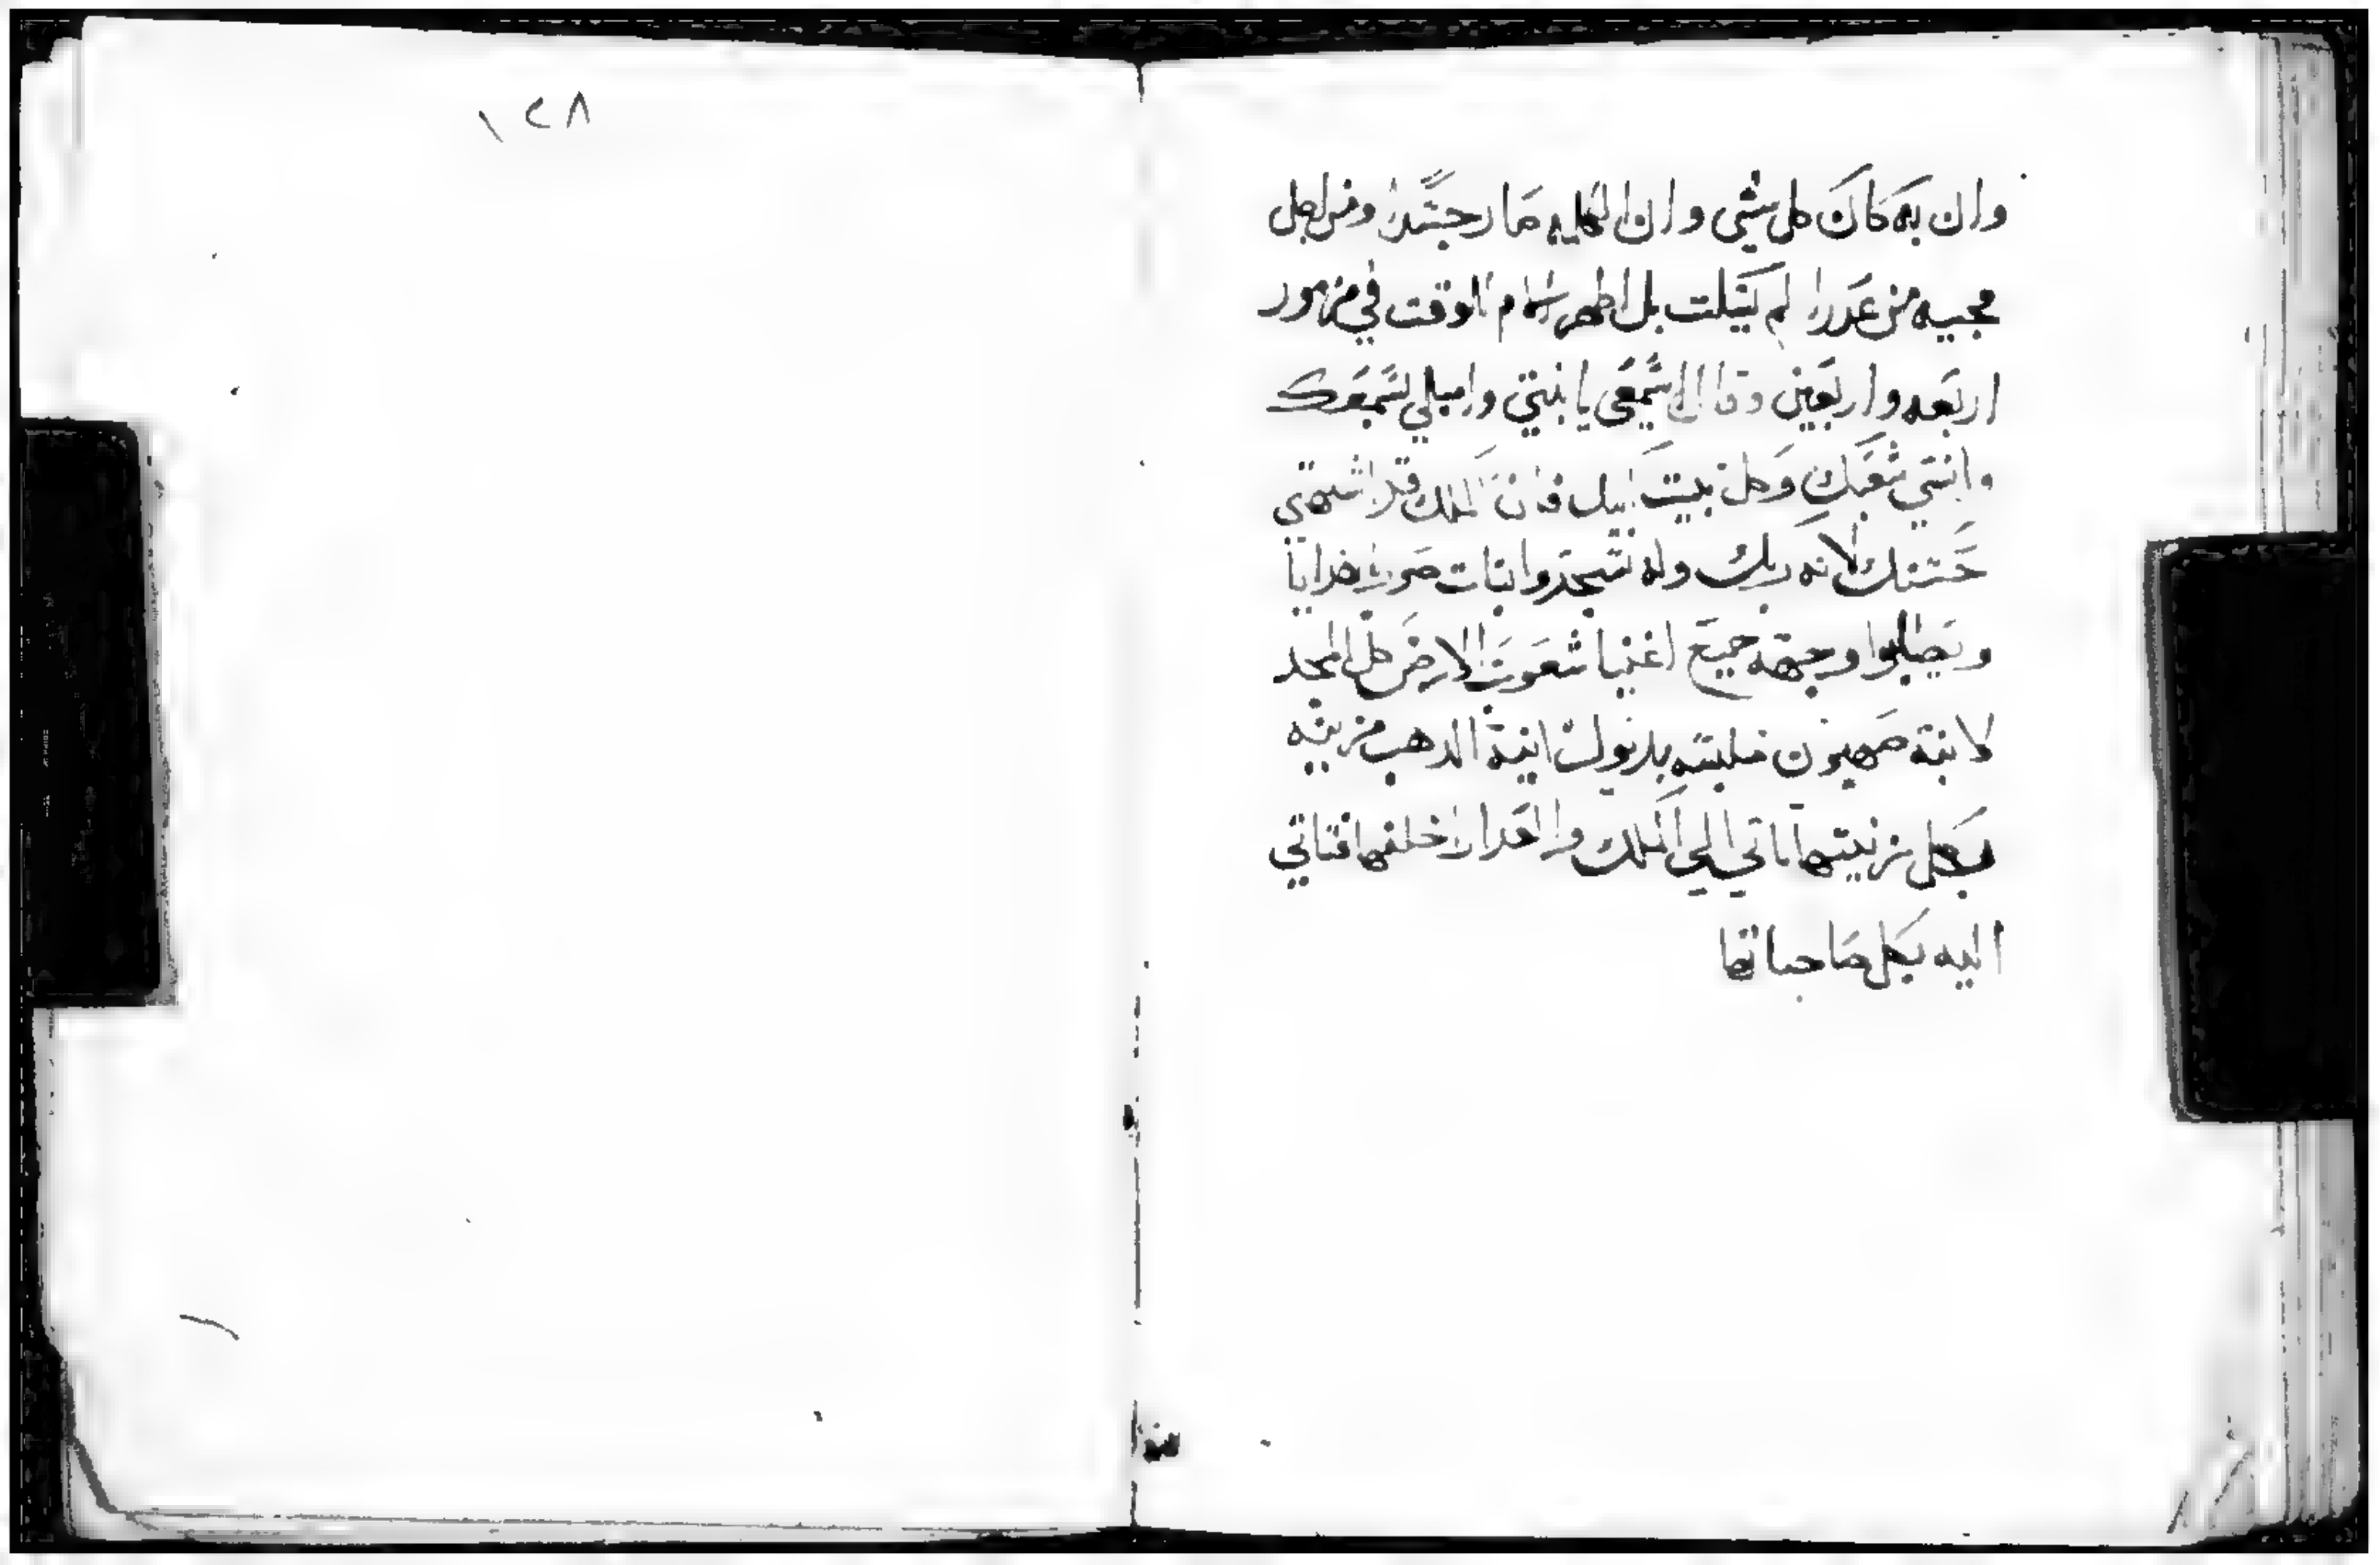 وان به كان كل شي وان الكلمه صار جسدا ومن اجل
مجيه من عدرا لم يسكت بل اظهر امام الوقت في مزمور
اربعه واربعين وقال اسمعي يا ابنتي واميلي لسمعك
وانسي شعبك وكل بيت ابيك فان الملك قد اشتهي
حسنك لانه ربك وله تسجدوا بنات صور بالهدايا
ويصلوا وجهه جميع اغنيا شعوب الارض كل المجد
لابنة صهيون بديول انية الدهب مزينه
بكل زينتها تاتي الي الملك والعدارا خلفها فتاتي
اليه بكل صاحباتها
١٢٨